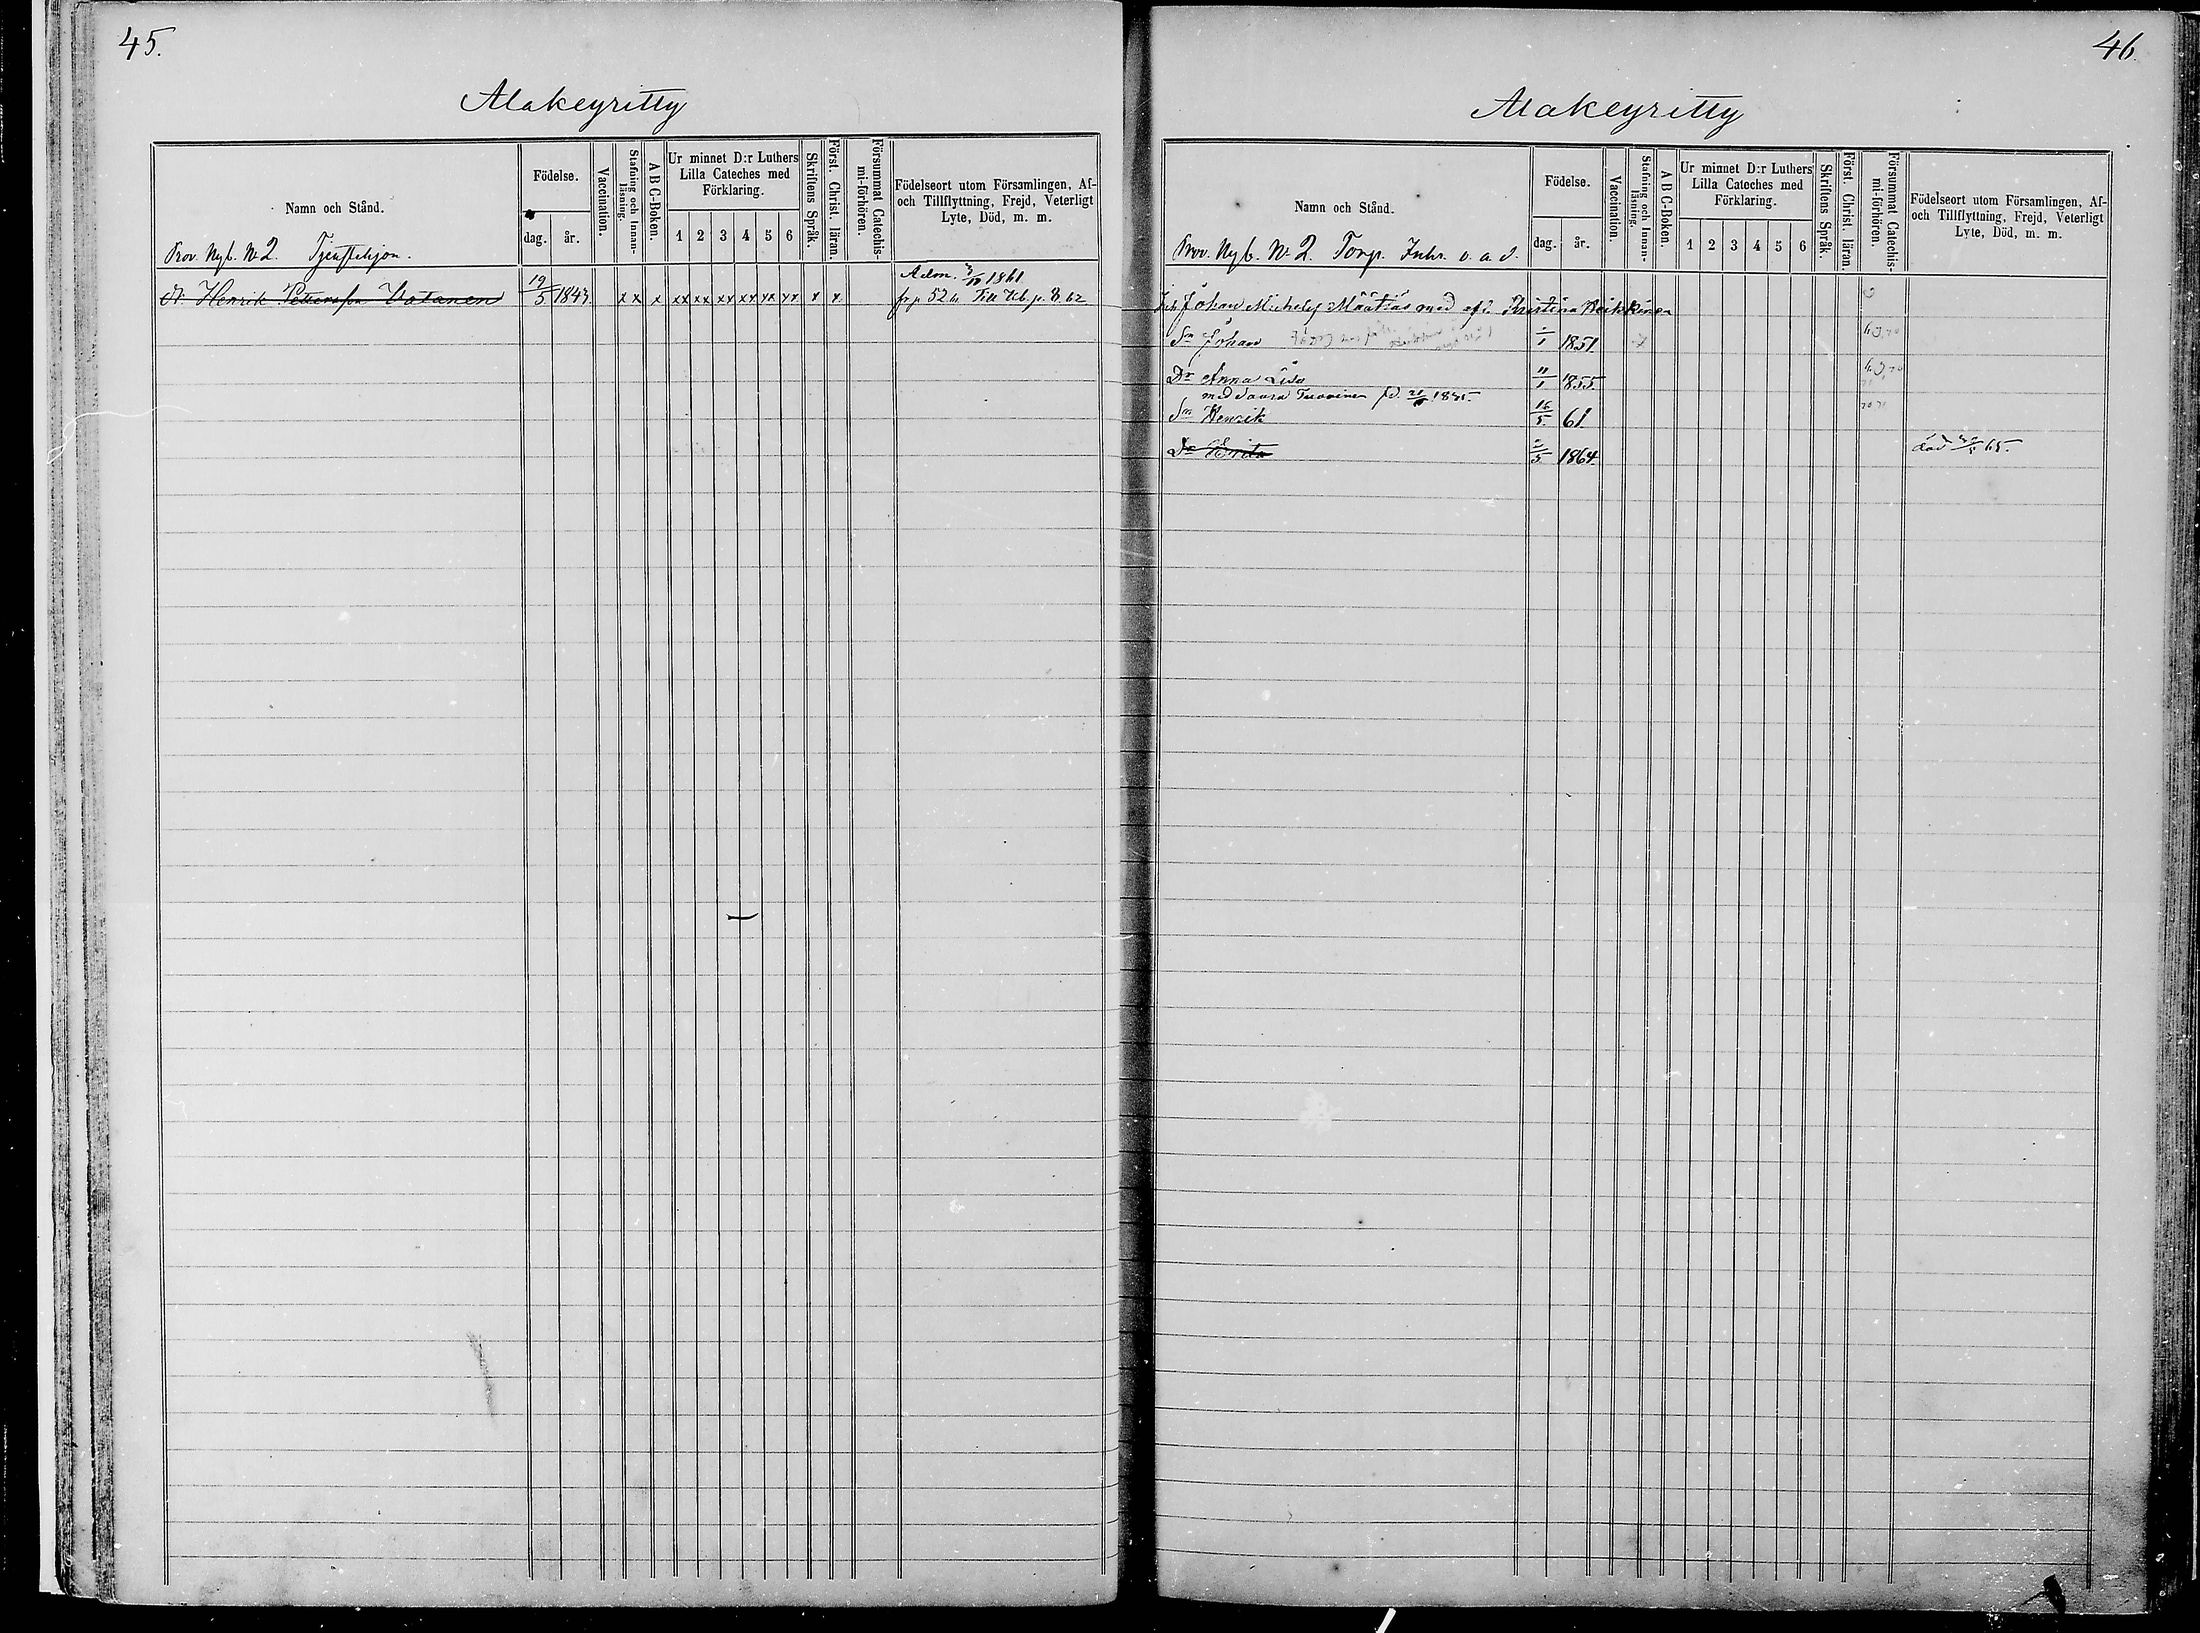 45.
Alakeyritty
Namn och Stånd.
Födelse.
dag.
år.
Vaccination.
Stafning och Innan-
läsning.
A B C-Boken.
Ur minnet D:r Luthers
Lilla Cateches med
Förklaring.
1 2 3 4 5 6
Skriftens Språk.
Först. Christ. läran.
Försummat Catechis-
mi-förhören.
Födelseort utom Församlingen, Af-
och Tillflyttning, Frejd, Veterligt
Lyte, Död, m. m.
Prov. Nyb. No 2. Tjenstehjon.
Adm. 1861
Henrik Pettersson Vatanen 19/5 1843. x x x xx xx xx xx xx xx x x fr p. 52
46.
Alakeyritty
Namn och Stånd.
Födelse.
dag.
år.
Vaccination.
Stafning och Innan-
läsning.
A B C-Boken.
Ur minnet D:r Luthers
Lilla Cateches med
Förklaring.
1 2 3 4 5 6
Skriftens Språk.
Först. Christ. läran.
Försummat Catechis-
mi-förhören.
Födelseort utom Församlingen, Af-
och Tillflyttning, Frejd, Veterligt
Lyte, Död, m. m.
Prov. Nyb. No 2. Torp. Inhs. o. a. d.
Johan Michelss Määttäs med
Sn Johan 1851.
Dr Anna Lisa 11/1 1855.
med
Sn Henrik 16/5 61
Dr Brita 1864. död 65.